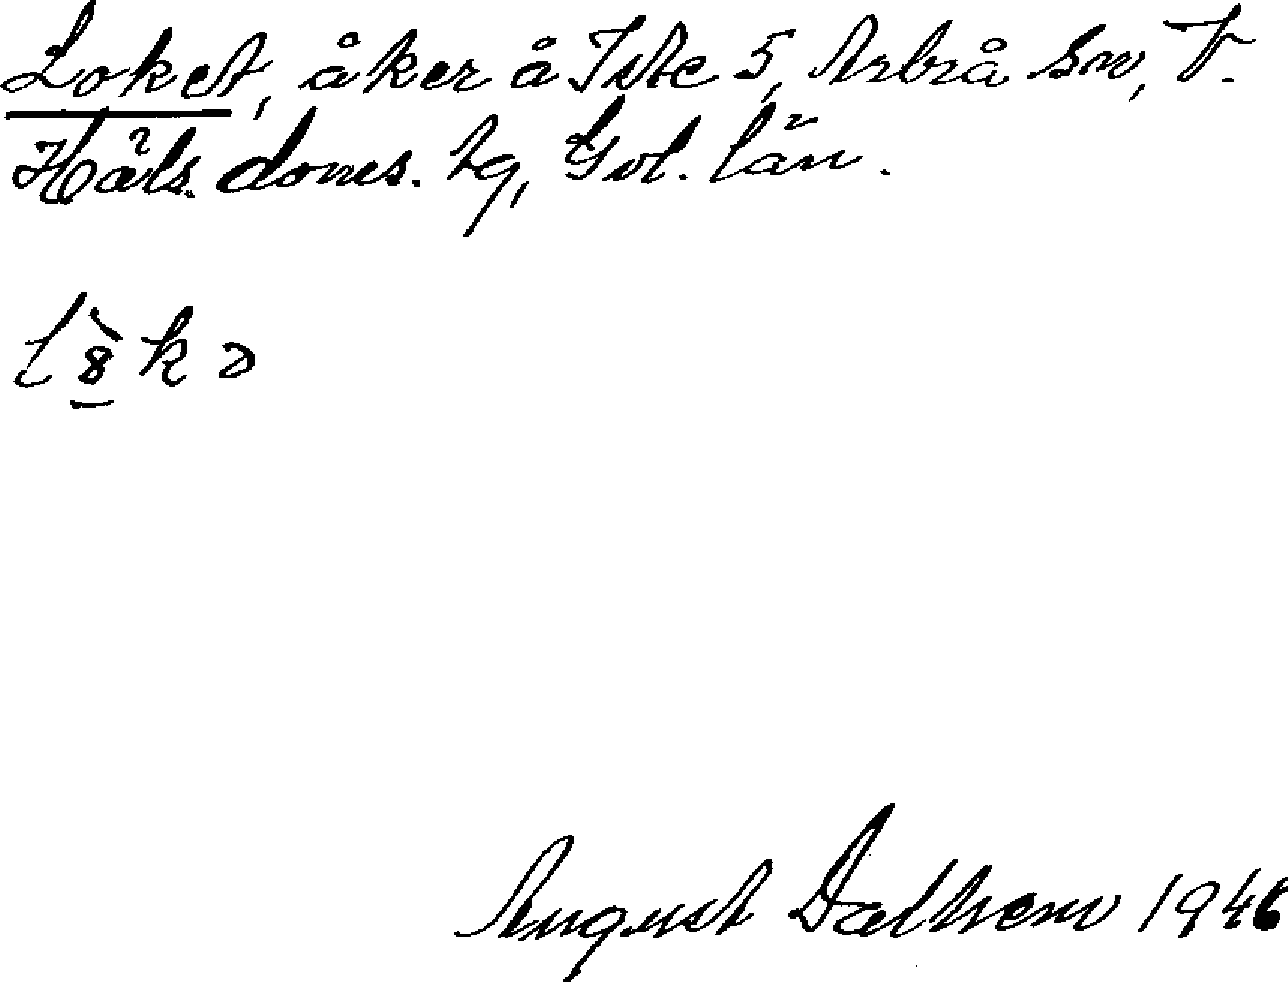 Loket, åker å Iste 5, Arbrå sn, V.
Häls. doms. tg, Gvl. län.
l8̲̀kə
August Dalhem 1946